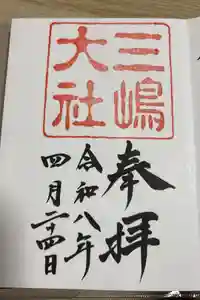 三嶋
大社
奉拝
令和八年
四月二十四日